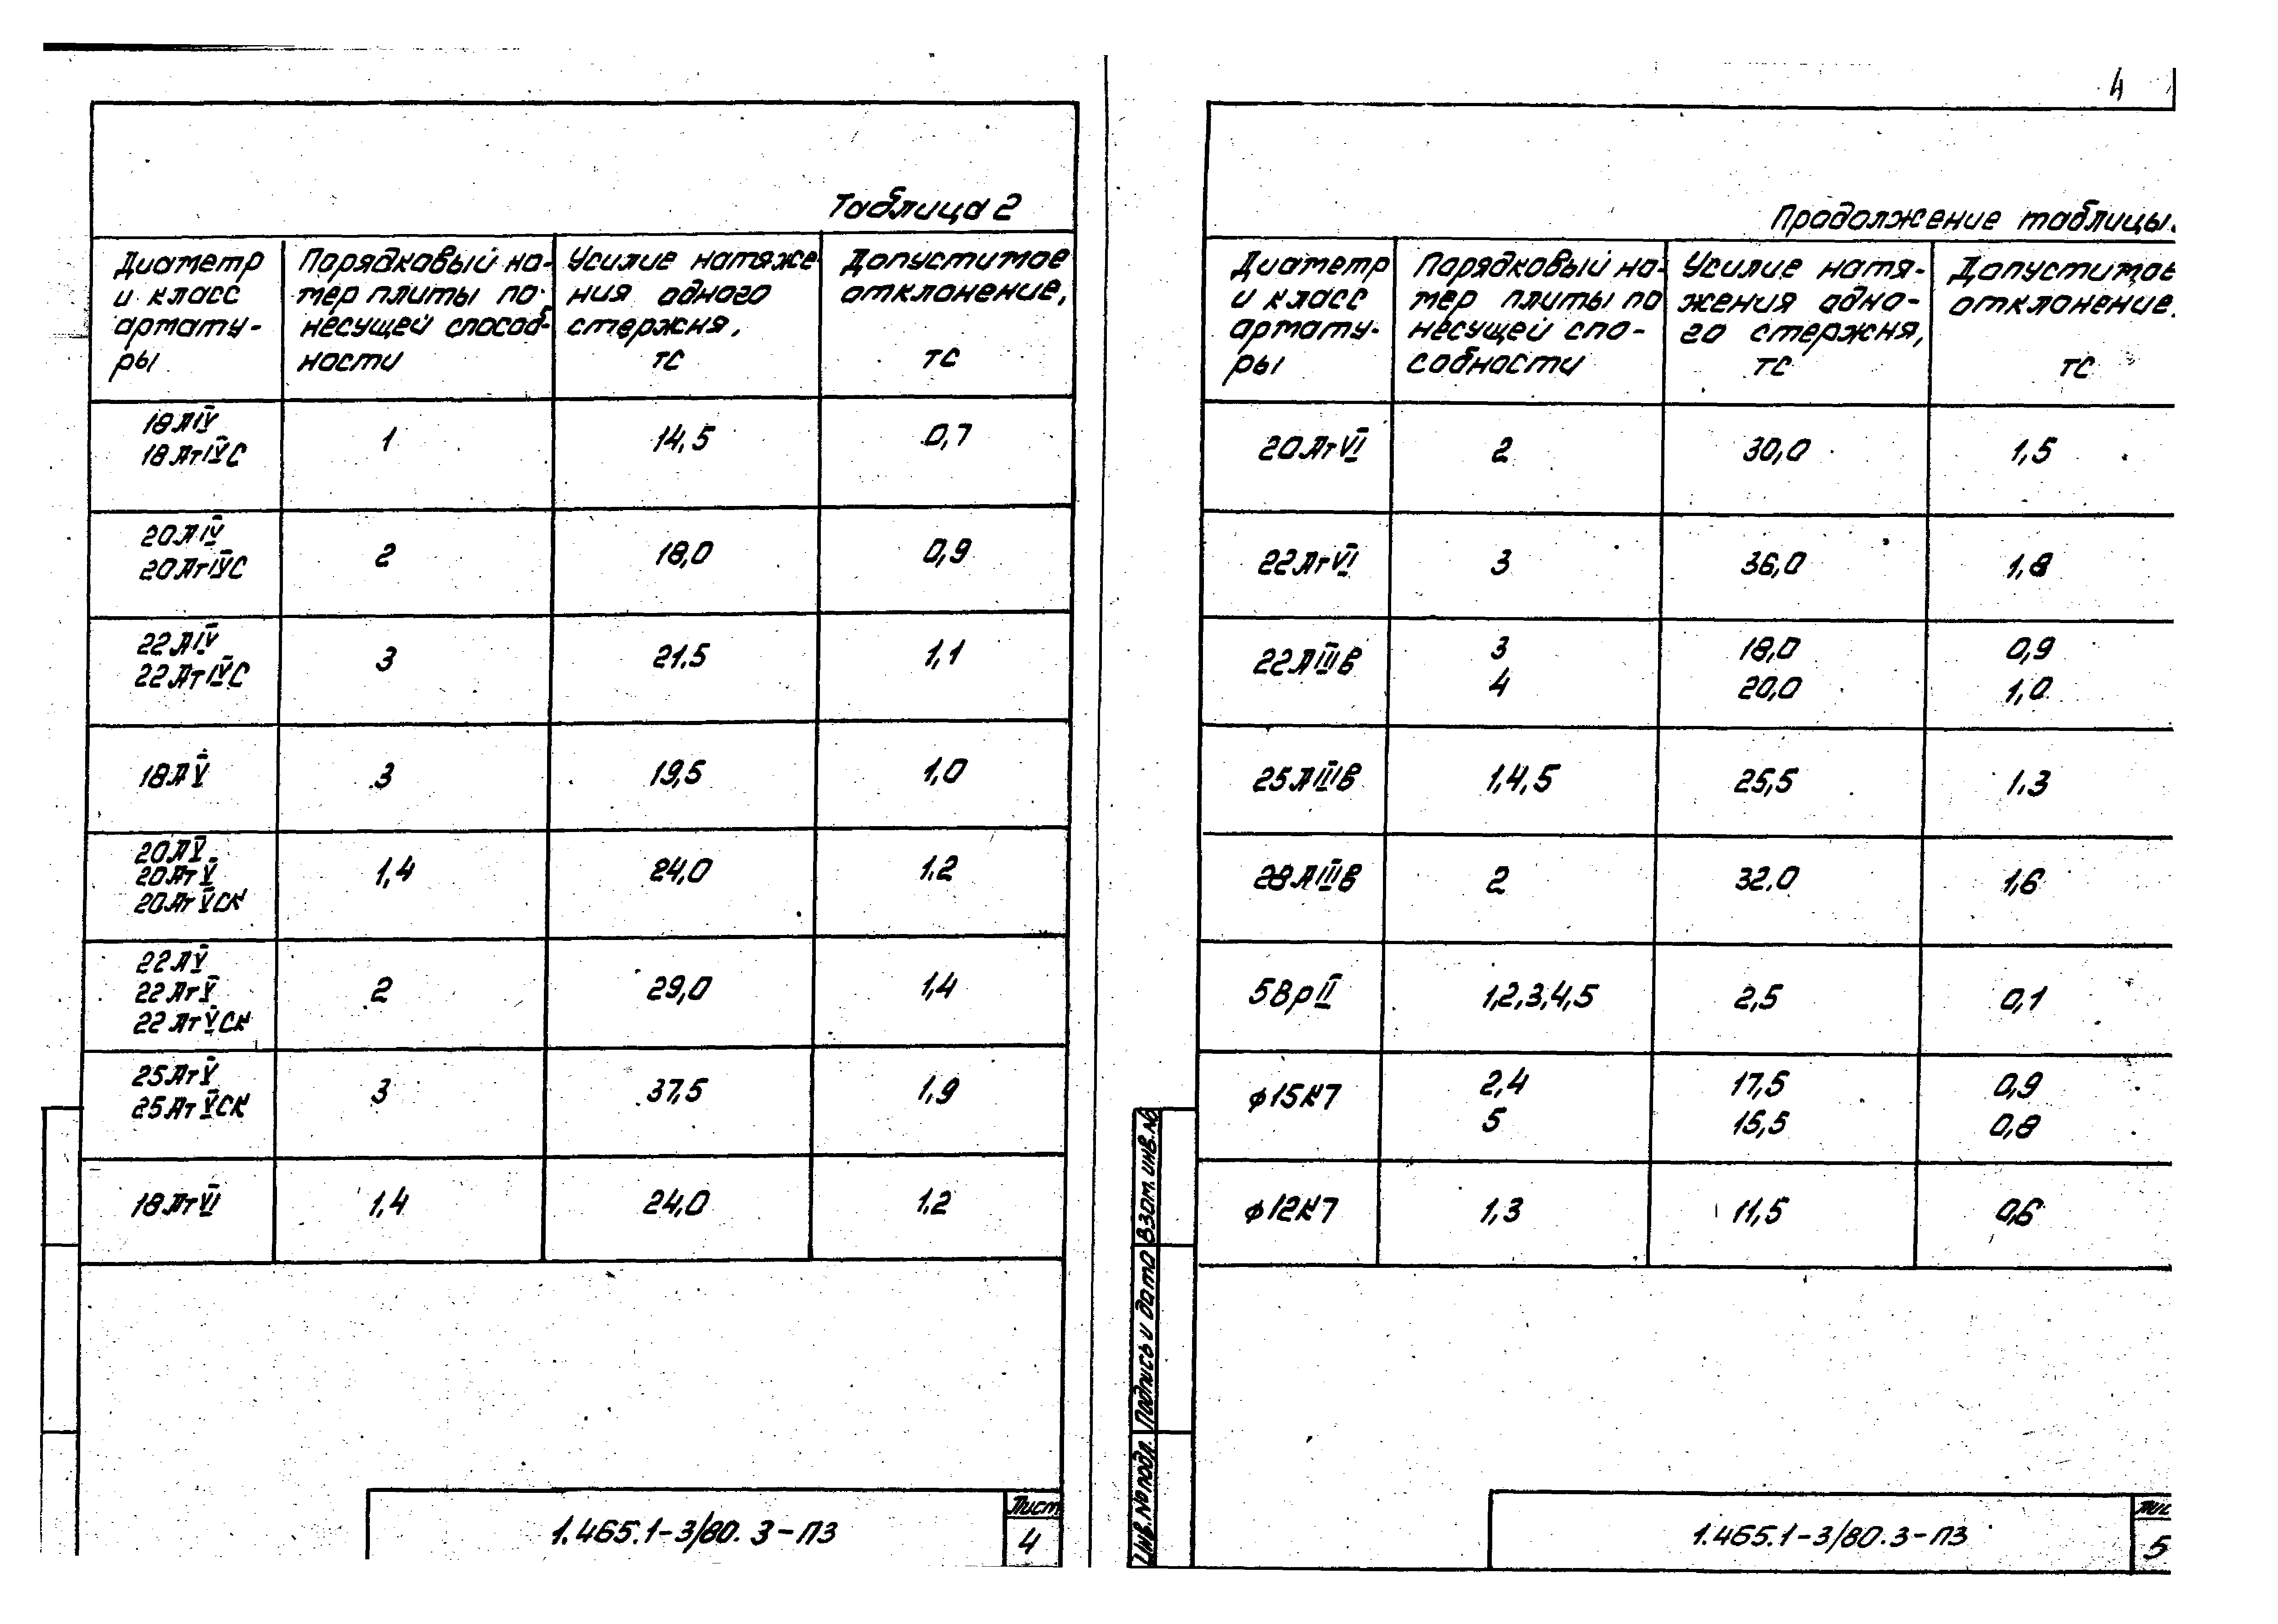 4
Таблица 2
Диаметр и класс армату-ры | Порядковый но-мер плиты по несущей способ-ности | Усилие натяже-ния одного стержня, тс | Допустимое отклонение, тс
18АIV
18АтIVС
1
14,5
0,7
20АIV
20АтIVС
2
18,0
0,9
22АIV
22АтIVС
3
21.5
1,1
18АV
3
19,5
1,0
20АV
20АтV
20АтVСК
1,4
24,0
1.2
22АV
22АтV
22АтVСК
2
29,0
1,4
25АтV
25АтVСК
3
37,5
1,9
18АтVI
1,4
24,0
1.2
1.465.1-3/80.3-ПЗ
Лист
4
Продолжение таблицы
Диаметр и класс армату-ры | Порядковый но-мер плиты по несущей спо-собности | Усилие натя-жения одно-го стержня, тс | Допустимое отклонение, тс
20АтVI
2
30,0
1,5
22АтVI
3
36,0
1,8
22АIIIв
3
18,0
0,9
4
20,0
1,0
25АIIIв
1,4,5
25,5
1.3
28АIIIв
2
32.0
1,6
5ВрII
1,2,3,4,5
2,5
0,1
ф15К7
2,4
17,5
0,9
5
15,5
0,8
ф12К7
1,3
11,5
0,6
Инв.№подл.
Подпись и дата
Взам. инв.№
1.465.1-3/80.3-ПЗ
5